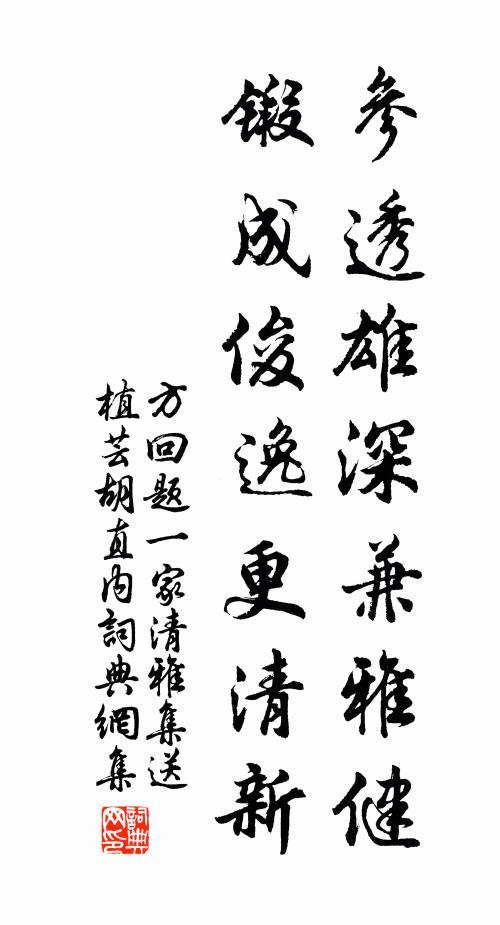 參透雄深兼雅健
鍛成俊逸更清新
方回題一家清雅集送
植芸胡直内詞典網集
詞典
网印